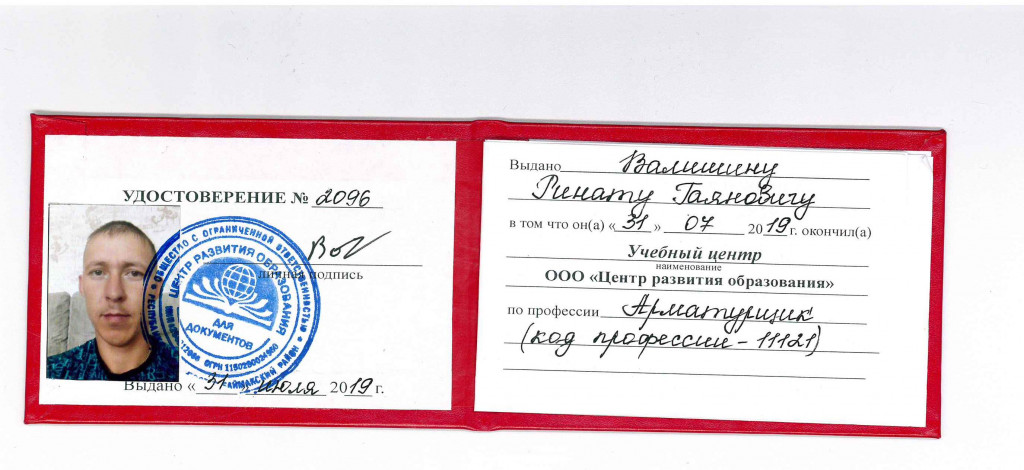 УДОСТОВЕРЕНИЕ № 2096
личная подпись
ОБЩЕСТВО С ОГРАНИЧЕННОЙ ОТВЕТСТВЕННОСТЬЮ
ЦЕНТР РАЗВИТИЯ ОБРАЗОВАНИЯ
ДЛЯ
ДОКУМЕНТОВ
Выдано « 31 » июля 2019 г.
Выдано Валишину
Ринату Гаяновичу
в том что он(а) « 31 » 07 2019 г. окончил(а)
Учебный центр
наименование
ООО «Центр развития образования»
по профессии Арматурщик
(код профессии - 11121)